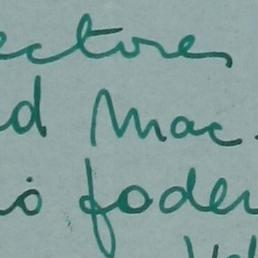 ectores
d Mac.
io foder